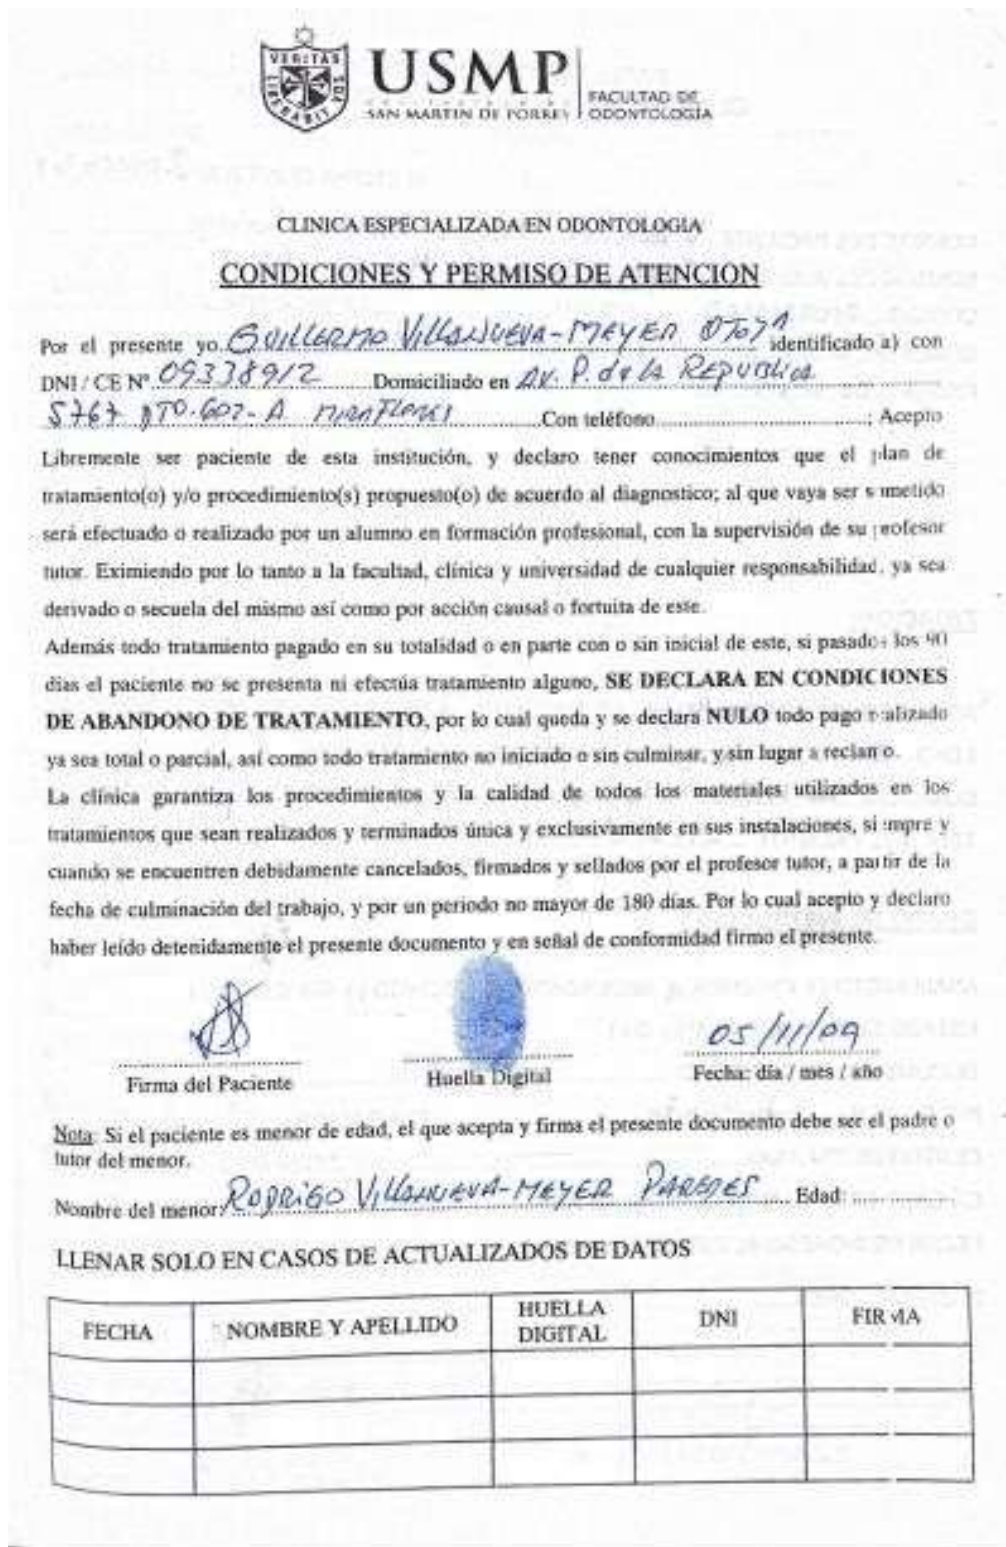 VERITAS
LIBERABIT VOS
USMP
SAN MARTIN DE PORRES
FACULTAD DE
ODONTOLOGÍA
CLINICA ESPECIALIZADA EN ODONTOLOGIA
CONDICIONES Y PERMISO DE ATENCION
Por el presente yo. GUILLERMO VILLANUEVA-MEYER identificado a) con
DNI / CE Nº 09338912 Domiciliado en AV. P. de la REPUBLICA
5767 DTO. 602-A MIRAFLORES Con teléfono ; Acepto
Libremente ser paciente de esta institución, y declaro tener conocimientos que el plan de
tratamiento(o) y/o procedimiento(s) propuesto(o) de acuerdo al diagnostico; al que vaya ser sometido
será efectuado o realizado por un alumno en formación profesional, con la supervisión de su profesor
tutor. Eximiendo por lo tanto a la facultad, clínica y universidad de cualquier responsabilidad, ya sea
derivado o secuela del mismo así como por acción causal o fortuita de este.
Además todo tratamiento pagado en su totalidad o en parte con o sin inicial de este, si pasados los 90
días el paciente no se presenta ni efectúa tratamiento alguno, SE DECLARA EN CONDICIONES
DE ABANDONO DE TRATAMIENTO, por lo cual queda y se declara NULO todo pago realizado
ya sea total o parcial, así como todo tratamiento no iniciado o sin culminar, y sin lugar a reclamo.
La clínica garantiza los procedimientos y la calidad de todos los materiales utilizados en los
tratamientos que sean realizados y terminados única y exclusivamente en sus instalaciones, siempre y
cuando se encuentren debidamente cancelados, firmados y sellados por el profesor tutor, a partir de la
fecha de culminación del trabajo, y por un periodo no mayor de 180 días. Por lo cual acepto y declaro
haber leído detenidamente el presente documento y en señal de conformidad firmo el presente.
05/11/09
Firma del Paciente Huella Digital Fecha: día / mes / año
Nota: Si el paciente es menor de edad, el que acepta y firma el presente documento debe ser el padre o
tutor del menor.
Nombre del menor: RODRIGO VILLANUEVA-MEYER PAREDES Edad:
LLENAR SOLO EN CASOS DE ACTUALIZADOS DE DATOS
FECHA NOMBRE Y APELLIDO HUELLA DIGITAL DNI FIRMA